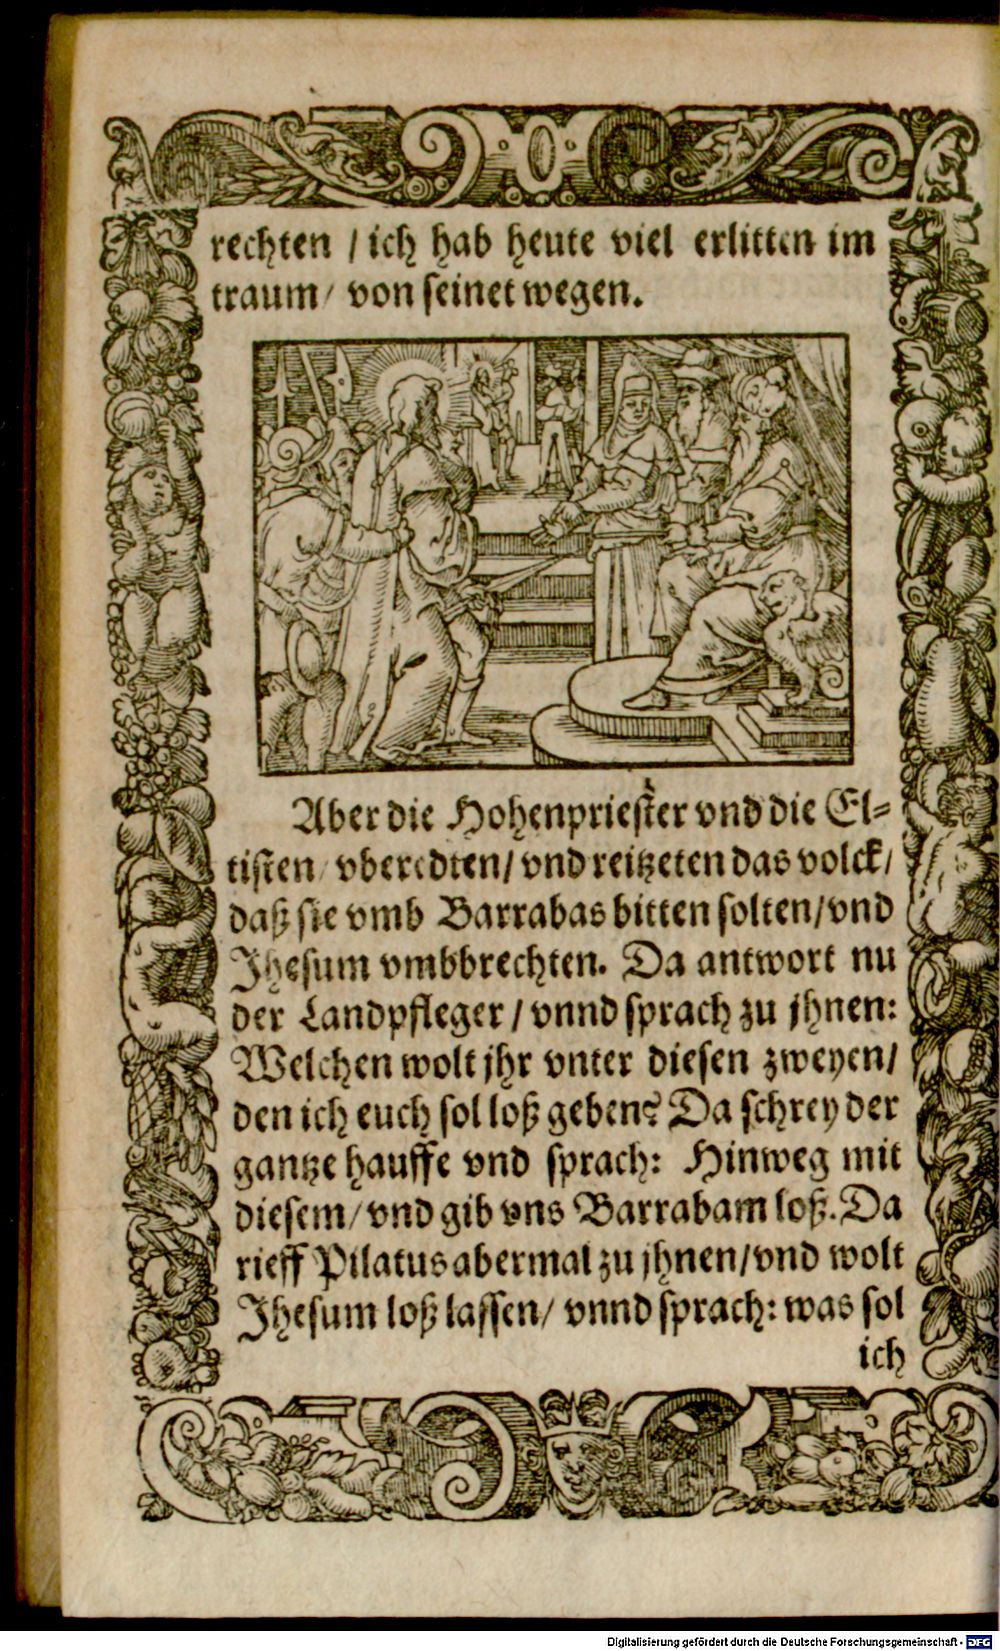 rechten / ich hab heute viel erlitten im
traum / von seinet wegen.
Aber die Hohenpriester vnd die El=
tisten / vberedten / vnd reitzeten das volck /
daß sie vmb Barrabas bitten solten / vnd
Jhesum vmbbrechten. Da antwort nu
der Landpfleger / vnnd sprach zu jhnen:
Welchen wolt jhr vnter diesen zweyen /
den ich euch sol loß geben? Da schrey der
gantze hauffe vnd sprach: Hinweg mit
diesem / vnd gib vns Barrabam loß. Da
rieff Pilatus abermal zu jhnen / vnd wolt
Jhesum loß lassen / vnnd sprach: was sol
ich
Digitalisierung gefördert durch die Deutsche Forschungsgemeinschaft - DFG